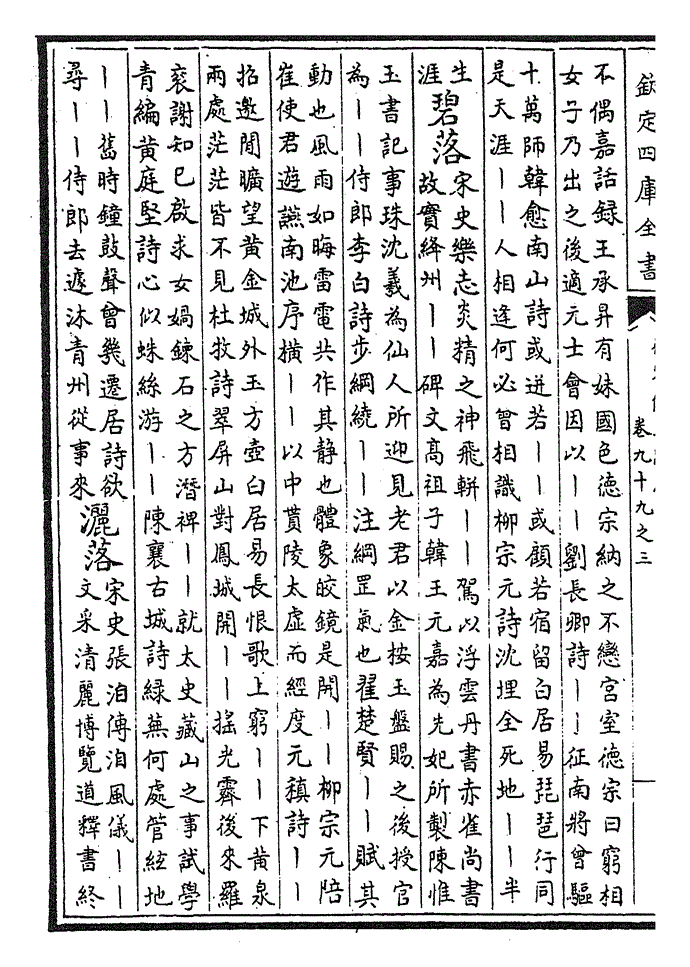 欽定四庫全書
卷九十九之三
不偶嘉話録王承昇有妹國色德宗納之不戀宮室德宗曰窮相
女子乃出之後適元士會因以——劉長卿詩——征南將曾驅
十萬師韓愈南山詩或迸若——或顧若宿留白居易琵琶行同
是天涯——人相逢何必曾相識柳宗元詩沈埋全死地——半
生
涯
碧落
宋史樂志炎精之神飛軿——駕以浮雲丹書赤雀尚書
故實絳州——碑文髙祖子韓王元嘉為先妃所製陳惟
玉書記事珠沈羲為仙人所迎見老君以金按玉盤賜之後授官
為——侍郎李白詩步綱繞——注綱罡氣也翟楚賢——賦其
動也風雨如晦雷電共作其静也體象皎鏡是開——柳宗元陪
崔使君遊讌南池序横——以中貫陵太虚而經度元稹詩——
招邀閒曠望黄金城外玉方壺白居易長恨歌上窮——下黄泉
兩處茫茫皆不見杜牧詩翠屏山對鳳城開——揺光霽後來羅
衮謝知己啟求女媧鍊石之方潛裨——就太史藏山之事試學
青編黄庭堅詩心似蛛絲游——陳襄古城詩緑蕪何處管絃地
——舊時鐘鼓聲曾幾遷居詩欲
尋——侍郎去遽沐青州從事來
灑落
宋史張洎傳洎風儀——
文采清麗博覽道釋書終